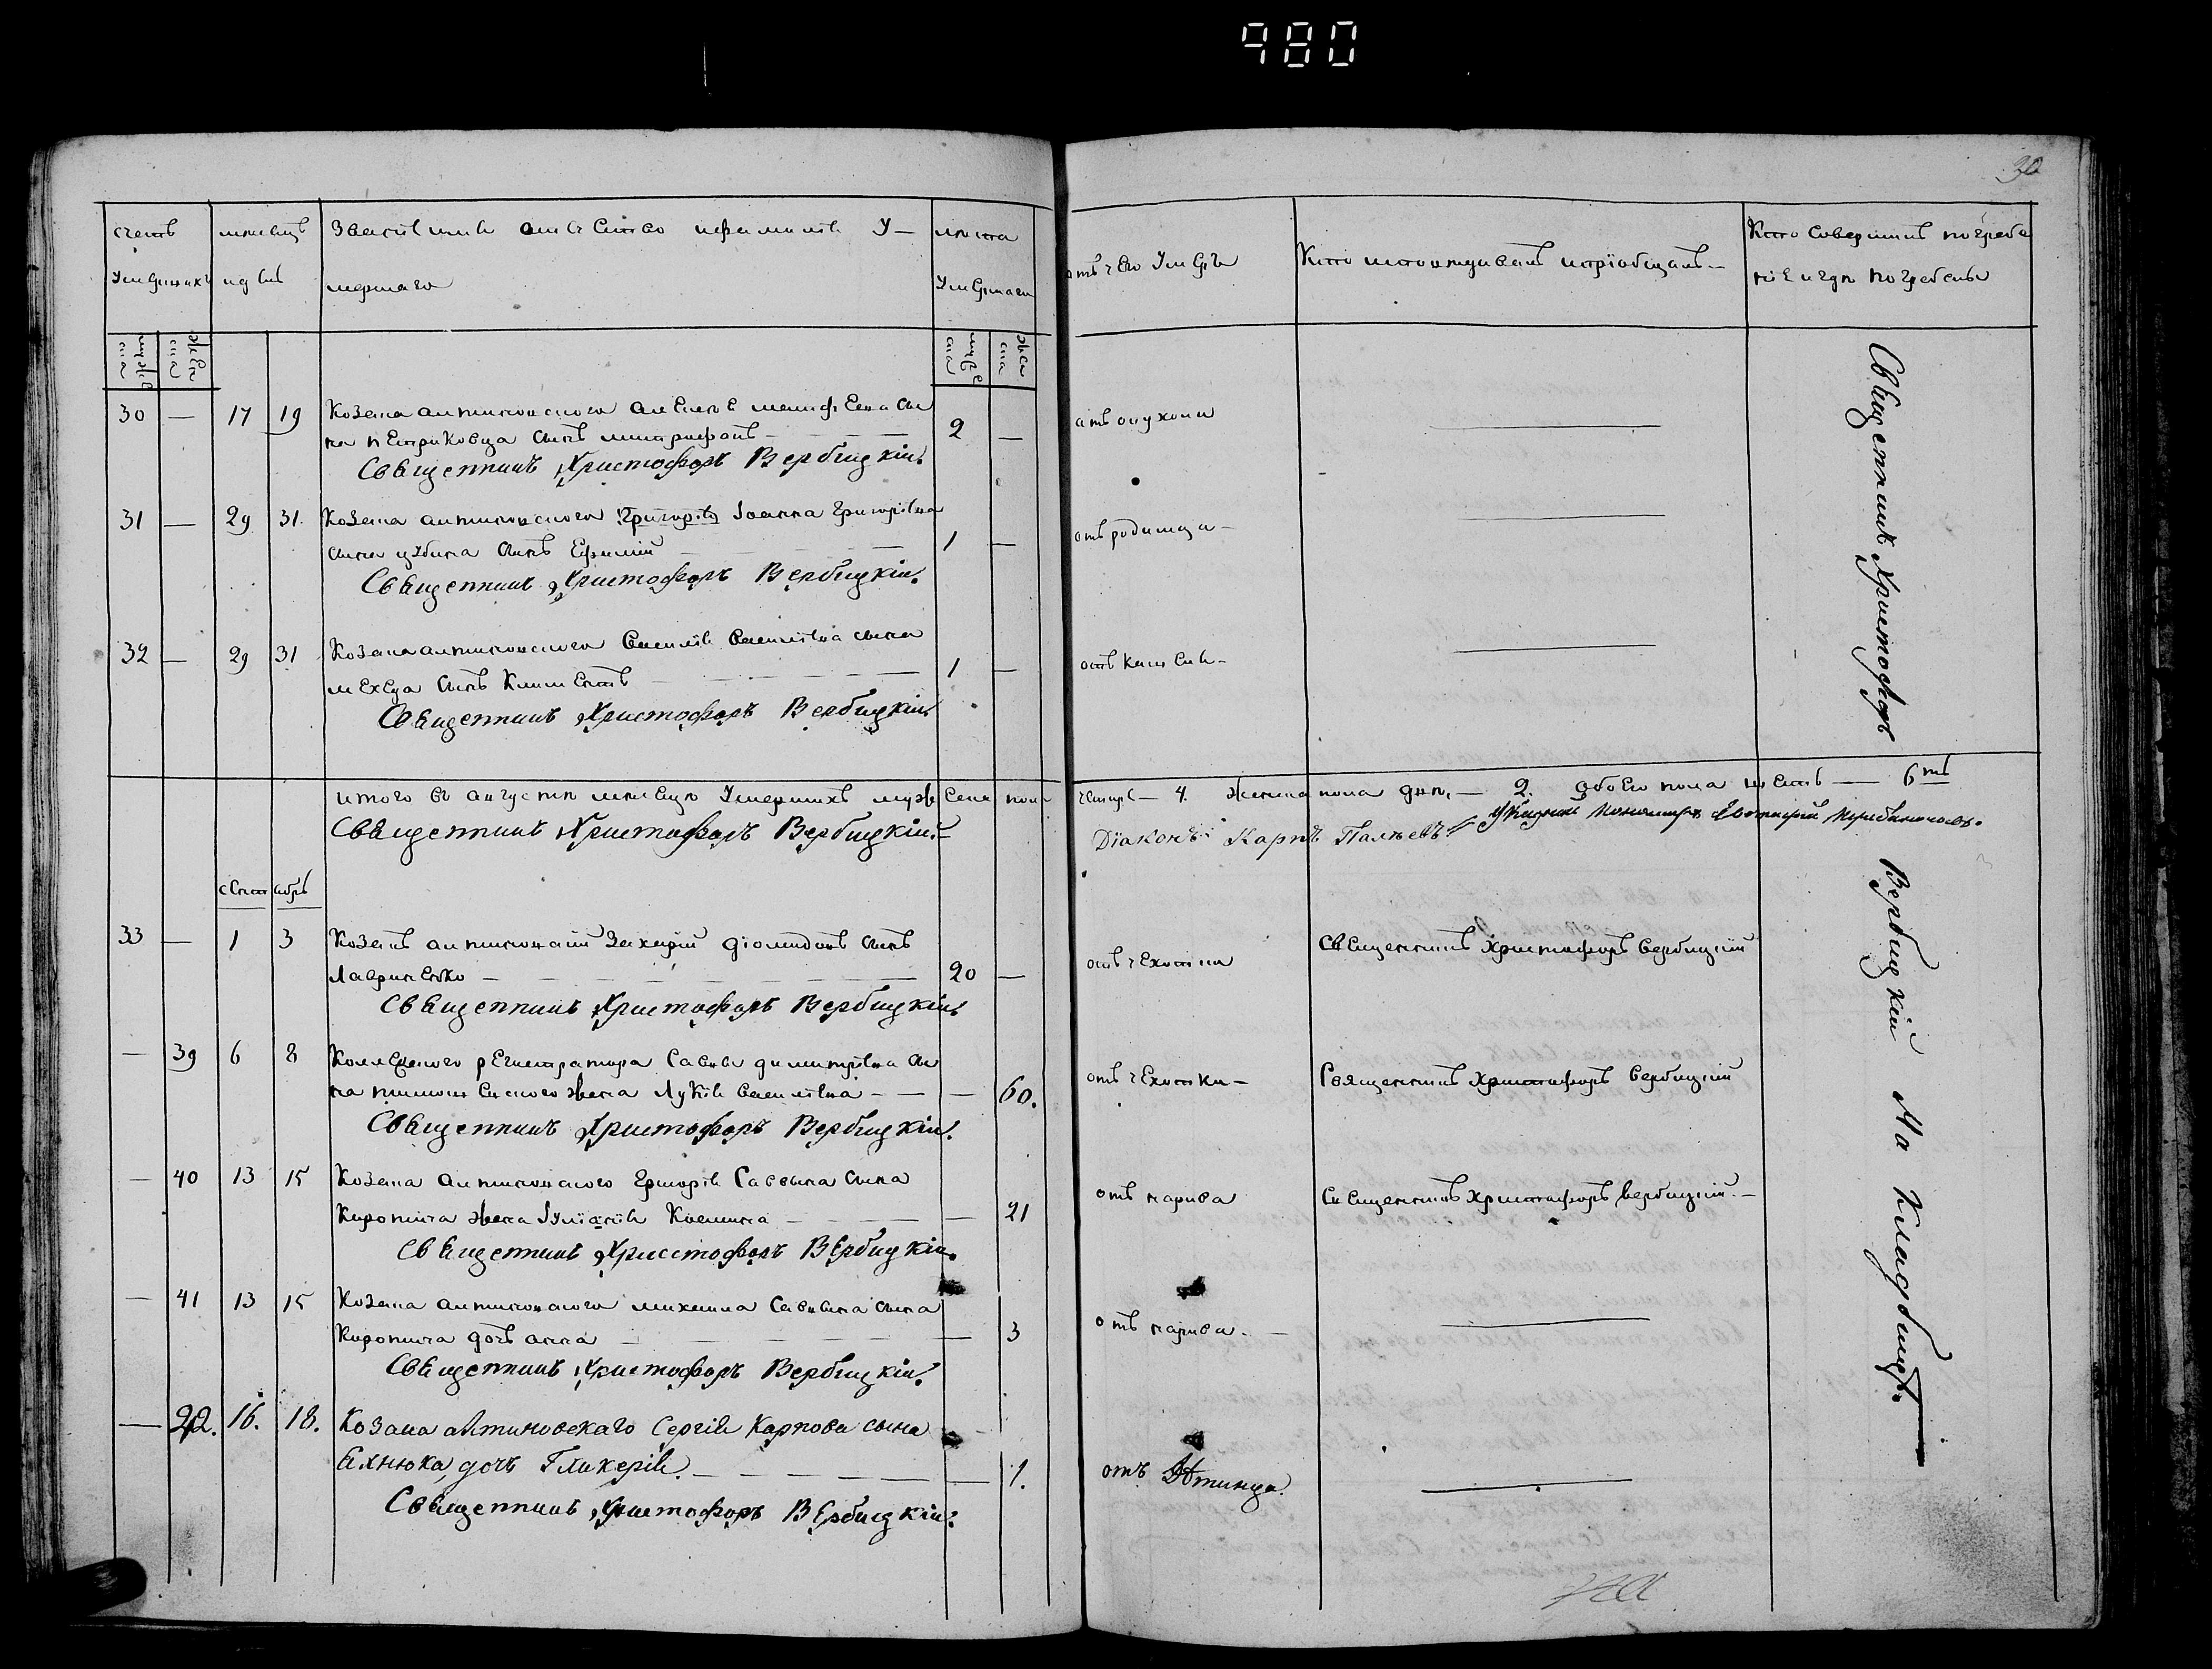 980
30
счетъ
Умершихъ
мѣсяцъ
и день
Званіе имя отчество и фамилія У-
мершаго
лѣта
Умершаго
отъ чего Умеръ
Кто исповѣдывалъ и пріобщалъ
Кто совершилъ погребе
ніе и гдѣ погребены
мужеска
женска
мужеска
женска
30 — 17 19 Козака алтиновского Алексея
на Петриковца сынъ Митрофанъ — 2 —
отъ опухоли
Священникъ Христофоръ Вербицкій.
31 — 29 31 Козака алтиновского Григорія Іоанна Григоріева
сына сынъ Ефимій — 1 —
отъ родимца —
Священникъ Христофоръ Вербицкій.
32 — 29 31 Козака алтиновского Василія Василіева сына
Мехеда сынъ Климентъ — 1 —
отъ кашля —
Священникъ Христофоръ Вербицкій
итого въ августѣ мѣсяцѣ Умершихъ мужеска пола четыре — 4. женска пола двѣ — 2. обоего пола шесть — 6ть
Священникъ Христофоръ Вербицкій.
Діаконъ Карпъ
сентябрь
33 — 1 3 Козакъ алтиновскій Захарій Діомидовъ сынъ
Лавриненко — 20 —
отъ чехотки
Священникъ Христофоръ Вербицкій
Священникъ Христофоръ Вербицкій
— 39 6 8 Коллежского регистратора Саввы Димитріева сы
на жена Лукія Василіева — — 60.
отъ чехотки —
Священникъ Христофоръ Вербицкій
Священникъ Христофоръ Вербицкій.
— 40 13 15 Козака алтиновского Григорія Саввина сына
жена Іуліанія — 21
отъ нарива
Священникъ Христофоръ Вербицкій. —
Священникъ Христофоръ Вербицкій.
— 41 13 15 Козака алтиновского Михаила Саввина сына
дочь Анна — 3
отъ нарива. —
Священникъ Христофоръ Вербицкій.
— 42. 16. 18. Козака алтиновскаго Сергія Карпова сына
дочь Гликерія. — 1.
отъ
Священникъ Христофоръ Вербицкій.
Священникъ Христофоръ
Вербицкій На Кладбищѣ.